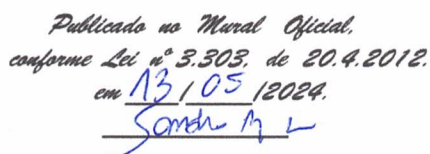 Publicado no Mural Oficial,
conforme Lei nº 3.303, de 20.4.2012.
em 13 / 05 /2024.